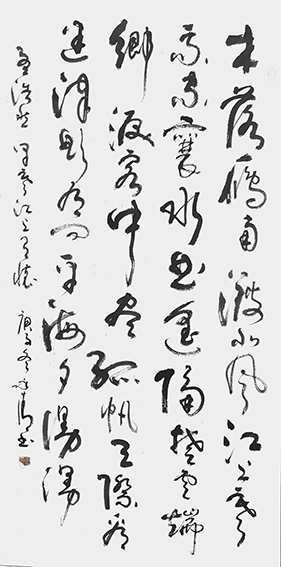 木落雁南渡北風江上寒
我家襄水曲遙隔楚雲端
鄉淚客中盡孤帆天際看
迷津欲有問平海夕漫漫
孟浩然早寒江上有懷 庚子冬 書